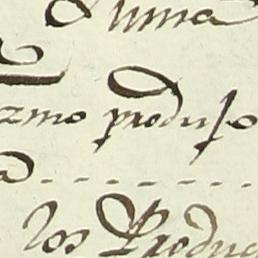 Suma
zmo produjo
a
los Produc